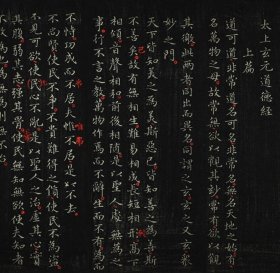 太上玄元道德經
上篇
道可道非常道名可名非常名無名天地之始有
名萬物之母故常無欲以觀其妙常有欲以觀
其徼此兩者同出而異名同謂之玄玄之又玄衆
妙之門
天下皆知美之為美斯惡已皆知善之為善斯
不善矣故有無相生難易相成長短相形高下
相傾音聲相和前後相隨是以聖人處無為之
事行不言之教萬物作焉而不辭生而不有為而
不恃功成而不居夫惟不居是以不去
不尚賢使民不爭不貴難得之貨使民不為盜
不見可欲使民心不亂是以聖人之治虛其心實
其腹弱其志強其骨常使民無知無欲使夫知者